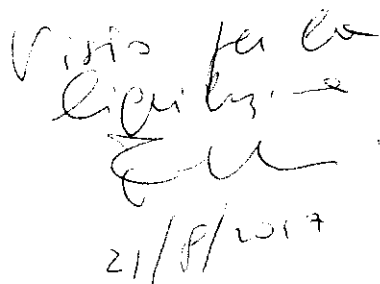 Visto per la
liquidazione
21/8/2017